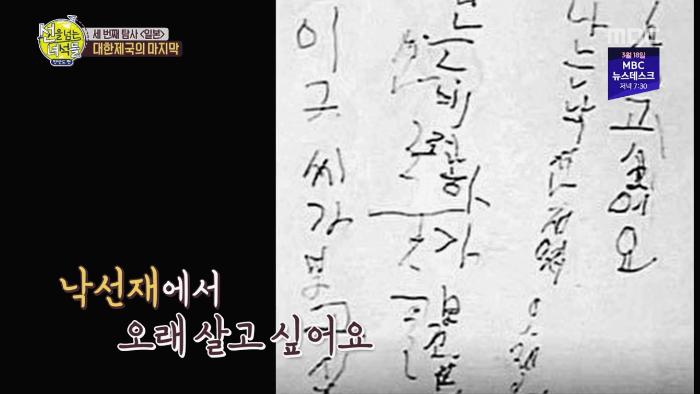 선을 넘는 녀석들
한반도 편
세 번째 탐사 <일본>
대한제국의 마지막
MBC
3월 18일
MBC
뉴스데스크
저녁 7:30
고싶어요
나는낙선재에서오래
비전하
이구씨가보고싶
낙선재에서
오래 살고 싶어요